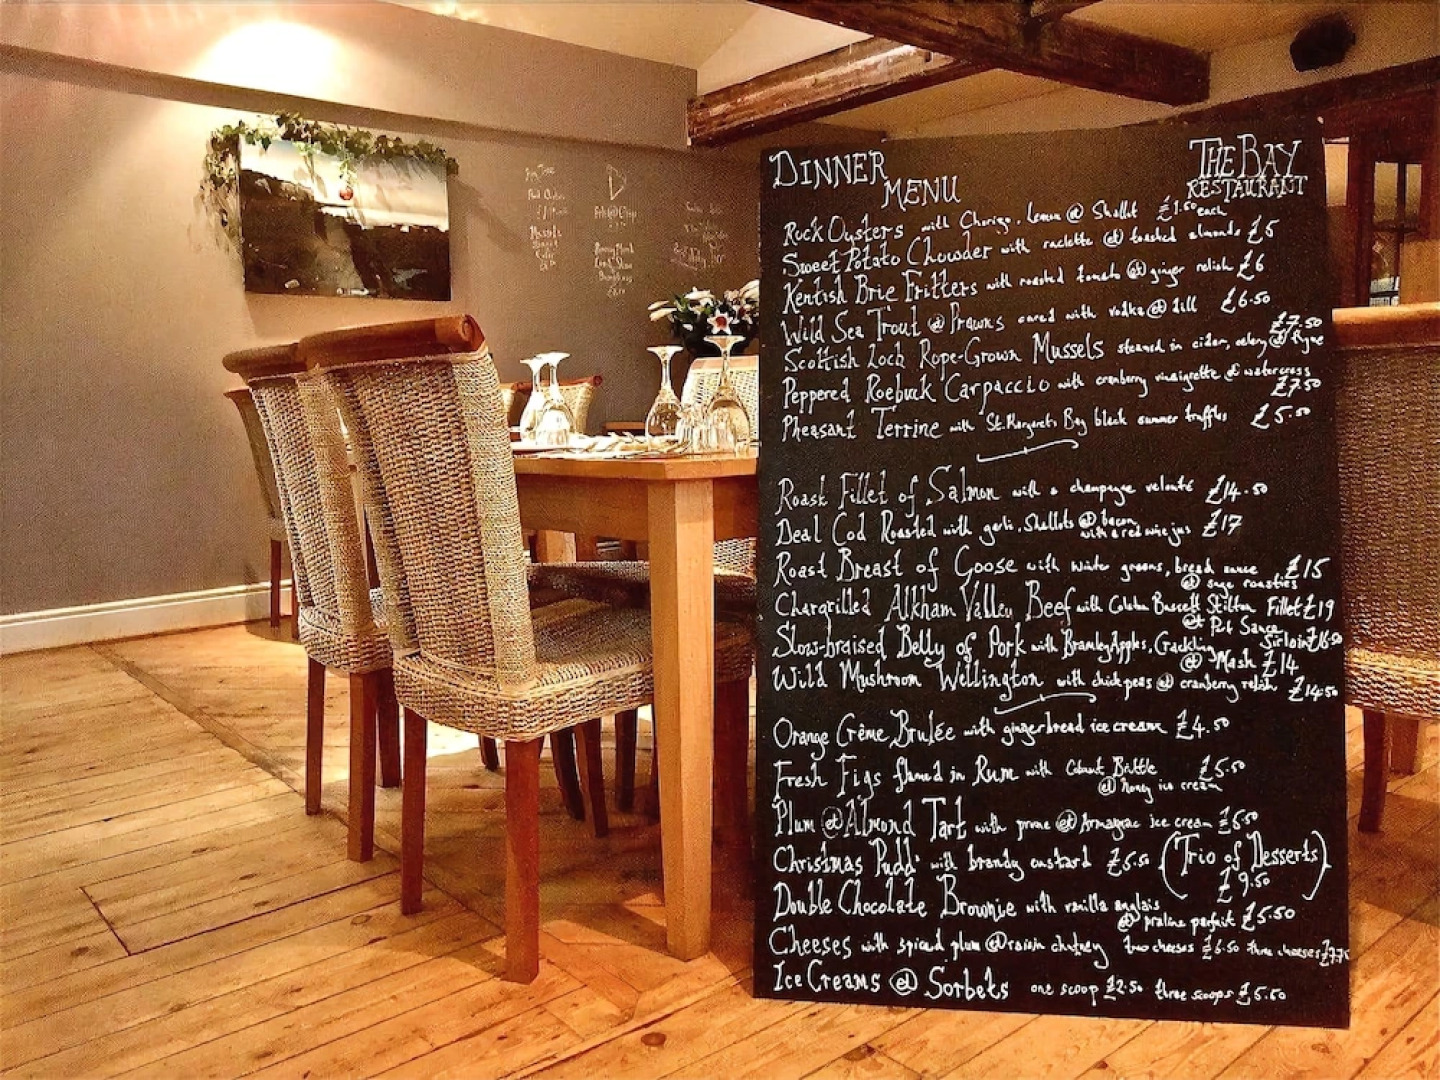 DINNER MENU
THE BAY RESTAURANT
Rock Oysters with Chorizo, Lemon & Shallot £1.50 each
Sweet Potato Chowder with raclette & toasted almonds £5
Kentish Brie Fritters with roasted tomato & ginger relish £6
Wild Sea Trout & Prawns cured with vodka & dill £6.50
Scottish Loch Rope-Grown Mussels steamed in cider, celery & thyme £7.50
Peppered Roebuck Carpaccio with cranberry vinaigrette & watercress £7.50
Pheasant Terrine with St. Margarets Bay black summer truffles £5.50
Roast Fillet of Salmon with a champagne velouté £14.50
Deal Cod Roasted with garlic, Shallots & bacon with a red wine jus £17
Roast Breast of Goose with winter greens, bread sauce & sage roasties £15
Chargrilled Alkham Valley Beef with Colston Bassett Stilton & Port Sauce Fillet £19 Sirloin £16.50
Slow-braised Belly of Pork with Bramley Apples, Crackling & Mash £14
Wild Mushroom Wellington with chickpeas & cranberry relish £14.50
Orange Crême Brulée with gingerbread ice cream £4.50
Fresh Figs flamed in Rum with Cobnut Brittle & Honey ice cream £5.50
Plum & Almond Tart with prune & Armagnac ice cream £5.50
Christmas Pudd' with brandy custard £5.50
(Trio of Desserts) £9.50
Double Chocolate Brownie with vanilla anglais & praline parfait £5.50
Cheeses with spiced plum & raisin chutney two cheeses £6.50 three cheeses £7.75
Ice Creams & Sorbets one scoop £2.50 three scoops £5.50